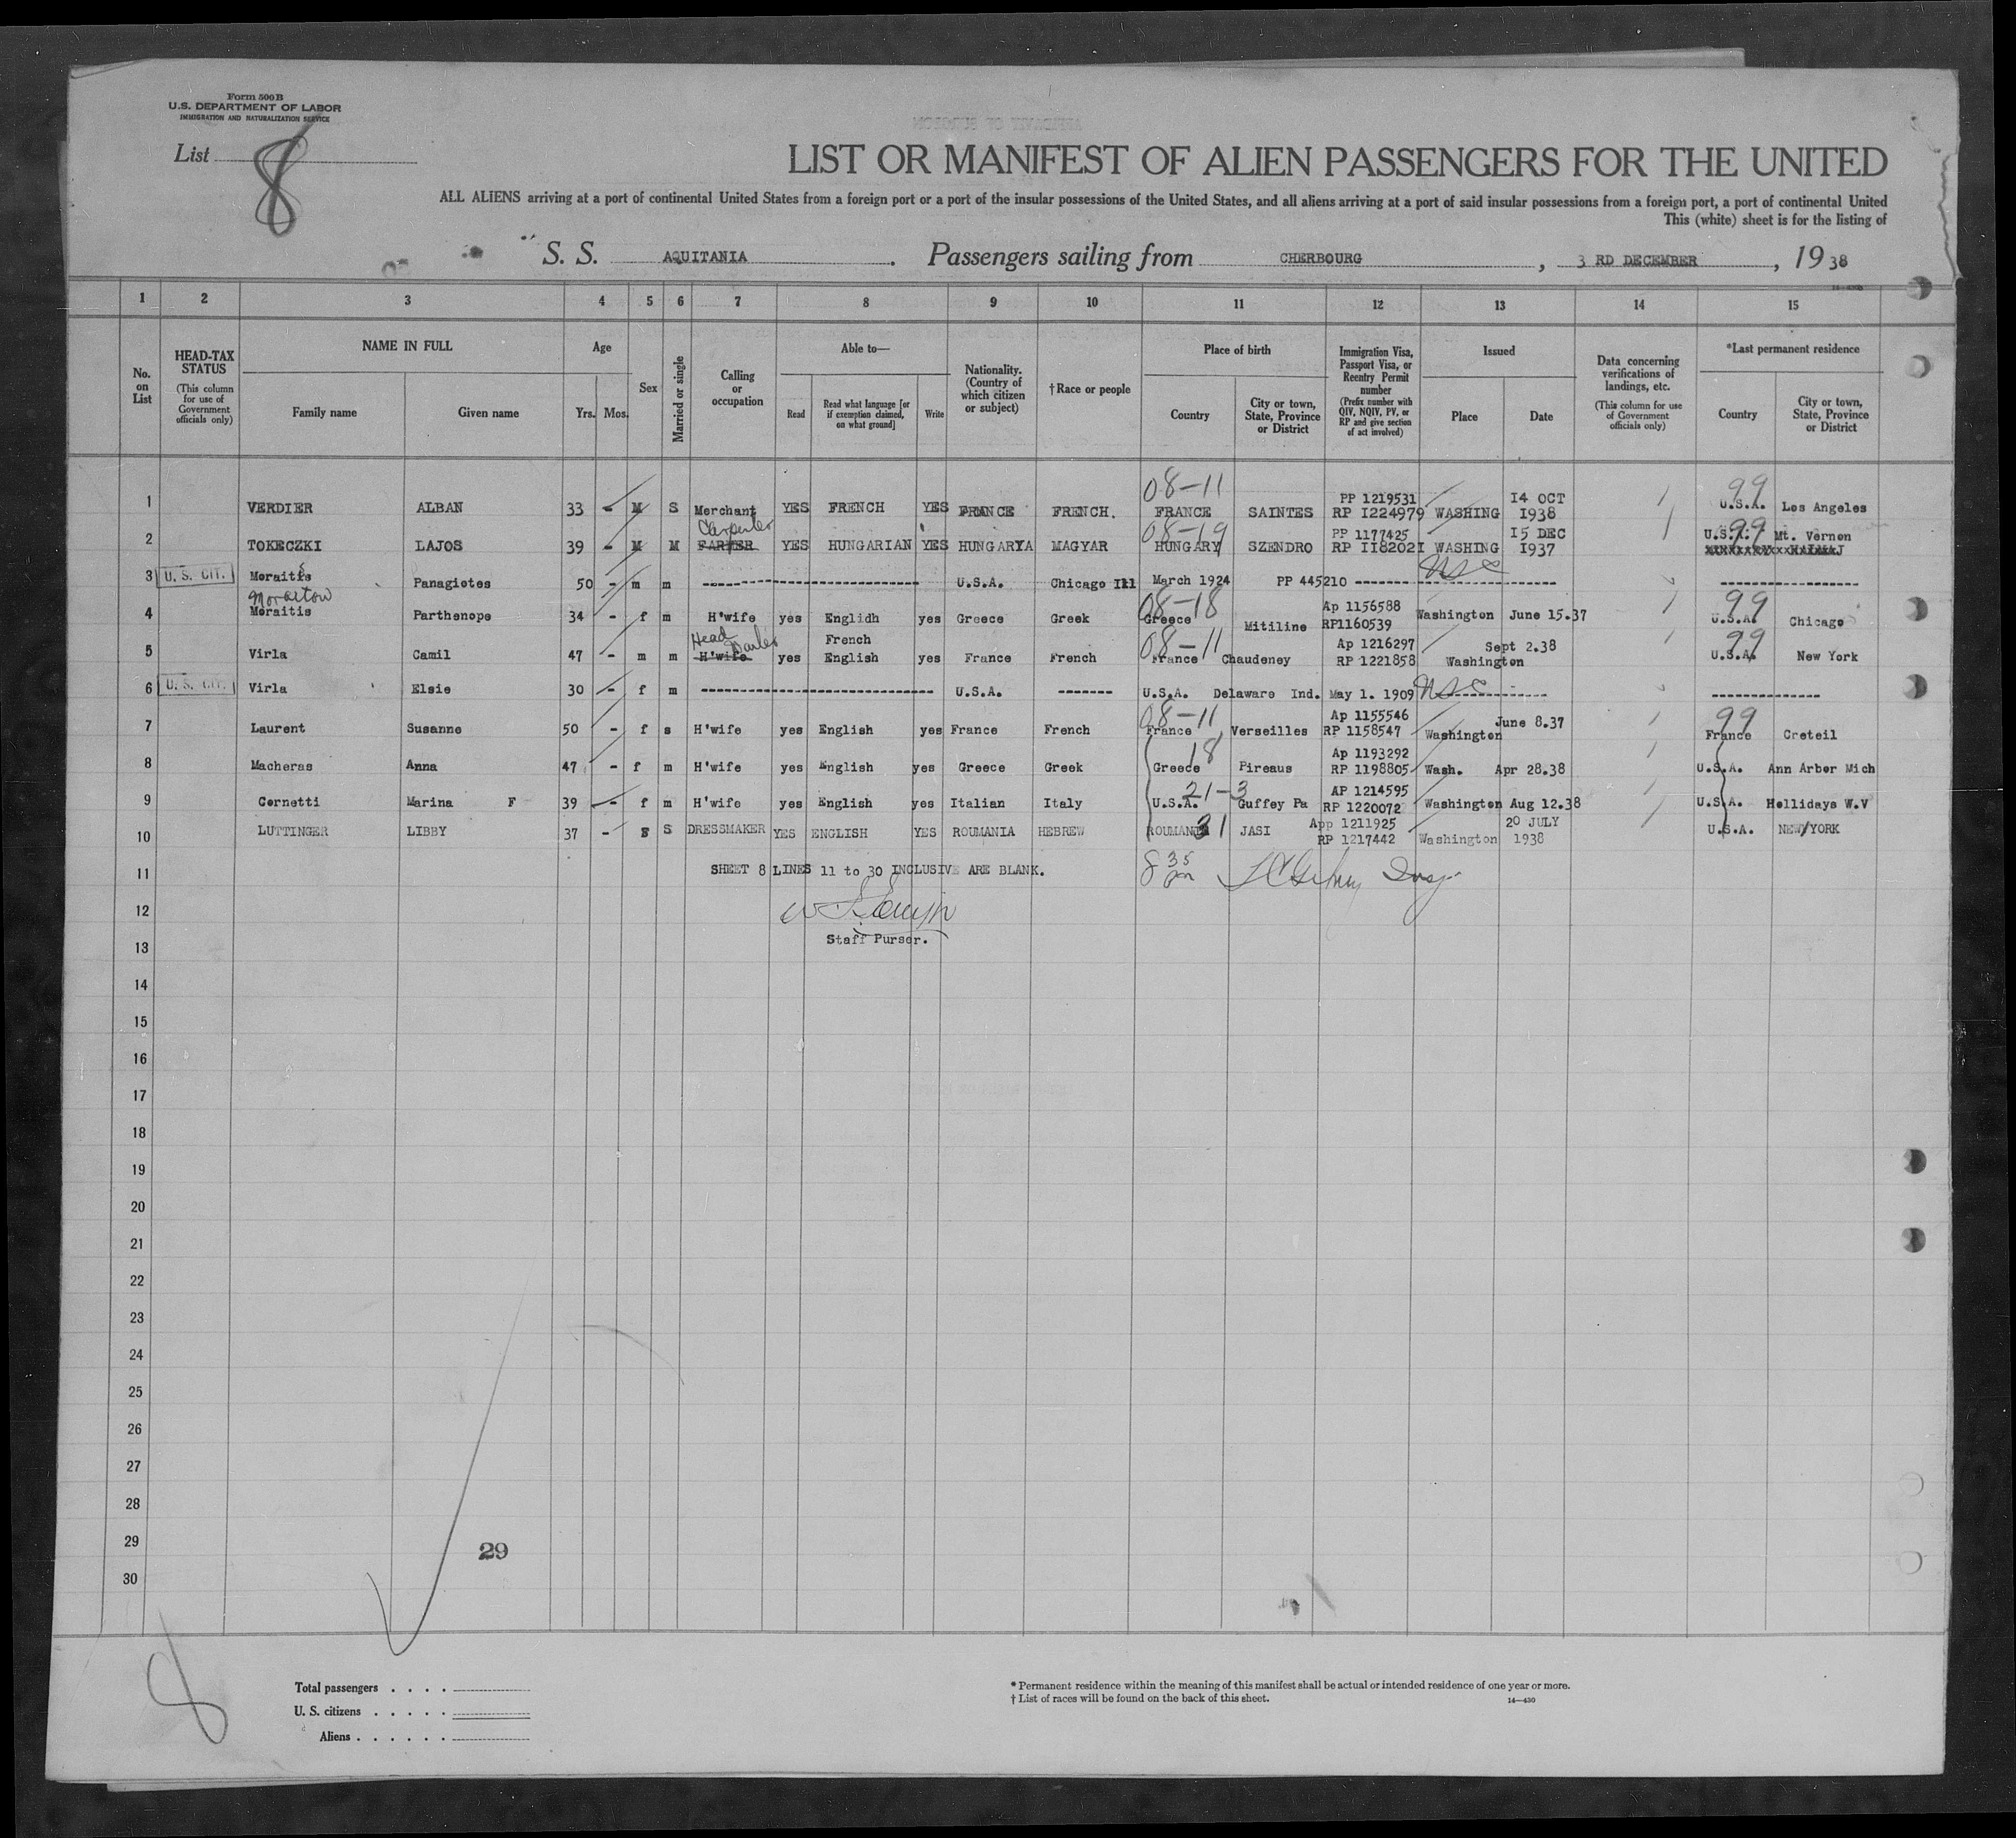 Form 500B
U.S. DEPARTMENT OF LABOR
IMMIGRATION AND NATURALIZATION SERVICE
List 8
LIST OR MANIFEST OF ALIEN PASSENGERS FOR THE UNITED
ALL ALIENS arriving at a port of continental United States from a foreign port or a port of the insular possessions of the United States, and all aliens arriving at a port of said insular possessions from a foreign port, a port of continental United
This (white) sheet is for the listing of
S. S. AQUITANIA. Passengers sailing from CHERBOURG, 3 RD DECEMBER, 1938
1 2 3 4 5 6 7 8 9 10 11 12 13 14 15
No. on List
HEAD-TAX STATUS (This column for use of Government officials only)
NAME IN FULL Family name Given name
Age Yrs. Mos.
Sex
Married or single
Calling or occupation
Able to— Read Read what language [or if exemption claimed, on what ground] Write
Nationality. (Country of which citizen or subject)
†Race or people
Place of birth Country City or town, State, Province or District
Immigration Visa, Passport Visa, or Reentry Permit number (Prefix number with QIV, NQIV, PV, or RP and give section of act involved)
Issued Place Date
Data concerning verifications of landings, etc. (This column for use of Government officials only)
*Last permanent residence Country City or town, State, Province or District
1 VERDIER ALBAN 33 - M S Merchant YES FRENCH YES FRANCE FRENCH. 08-11 FRANCE SAINTES PP 1219531 RP I224979 WASHING I4 OCT I938 99 U.S.A. Los Angeles
2 TOKECZKI LAJOS 39 - M M Carpenter FARMER YES HUNGARIAN YES HUNGARYA MAGYAR 08-19 HUNGARY SZENDRO PP 1177425 RP II8202I WASHING I5 DEC I937 99 U.S.A. Mt. Vernon
3 U. S. CIT. Moraitis Panagiotes 50 - m m U.S.A. Chicago Ill March 1924 PP 445210
4 Moraitis Parthenope 34 - f m H'wife yes Englidh yes Greece Greek 08-18 Greece Mitiline Ap 1156588 RP1160539 Washington June 15.37 99 U.S.A. Chicago
5 Virla Camil 47 - m m Head H'wife yes French English yes France French 08-11 France Chaudeney Ap 1216297 RP 1221858 Washington Sept 2.38 99 U.S.A. New York
6 U. S. CIT. Virla Elsie 30 - f m U.S.A. U.S.A. Delaware Ind. May 1. 1909
7 Laurent Susanne 50 - f s H'wife yes English yes France French 08-11 France Verseilles Ap 1155546 RP 1158547 Washington June 8.37 99 France Creteil
8 Macheras Anna 47 - f m H'wife yes English yes Greece Greek 18 Greece Pireaus Ap 1193292 RP 1198805 Wash. Apr 28.38 U.S.A. Ann Arbor Mich
9 Cornetti Marina F 39 - f m H'wife yes English yes Italian Italy 21-3 U.S.A. Guffey Pa AP 1214595 RP 1220072 Washington Aug 12.38 U.S.A. Hollidays W.V
10 LUTTINGER LIBBY 37 - S DRESSMAKER YES ENGLISH YES ROUMANIA HEBREW ROUMANIA 31 JASI App 1211925 RP 1217442 Washington 20 JULY 1938 U.S.A. NEW YORK
11 SHEET 8 LINES 11 to 30 INCLUSIVE ARE BLANK. 8 35 pm
12
Staff Purser.
13
14
15
16
17
18
19
20
21
22
23
24
25
26
27
28
29
29
30
8
Total passengers
U. S. citizens
Aliens
* Permanent residence within the meaning of this manifest shall be actual or intended residence of one year or more.
† List of races will be found on the back of this sheet. 14—430